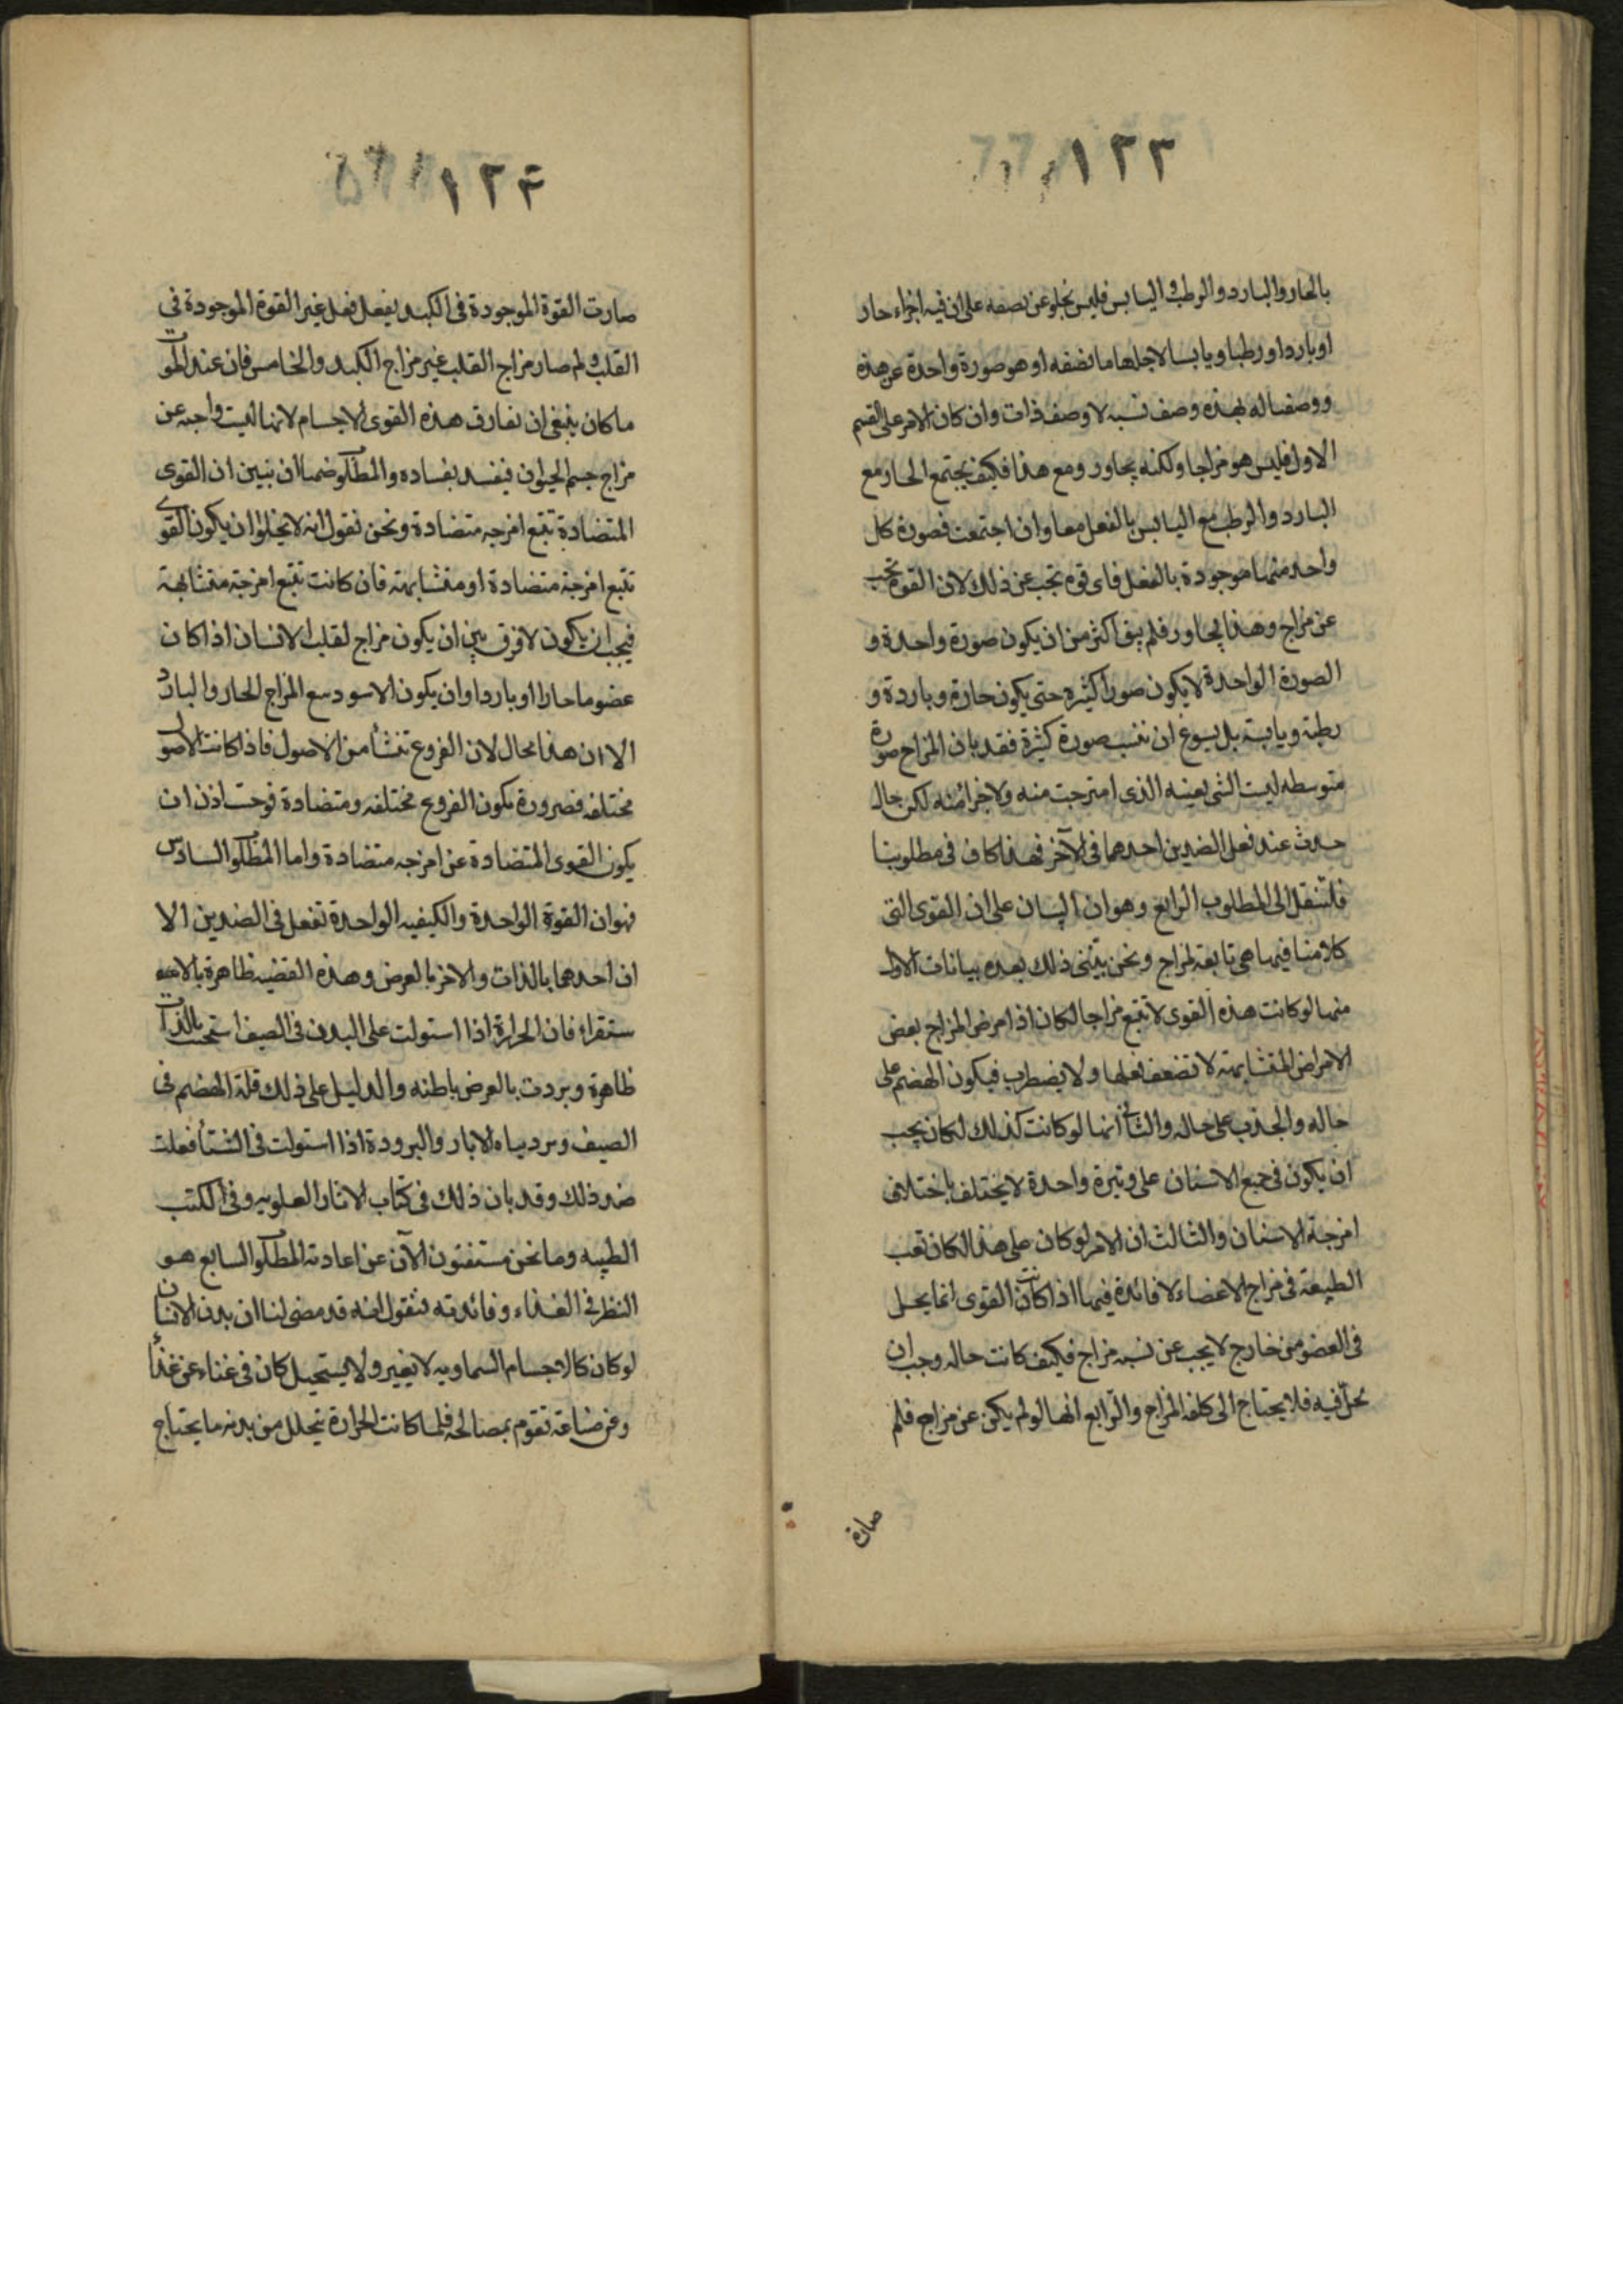 ١٢٣
بالحار والبارد والرطب واليابس فليس نخلو عن نصفه على ان فيه اجزاء حار
او باردا ورطبا ويابسا لاجلها ما نضفه او هو صورة واحدة عن هذه
ووصفنا له بهذه وصف نسبه لا وصف ذات وان كان الامر على القسم
الاول فليس هو مزاجا ولكنه يجاور ومع هذا فكيف يجتمع الحار مع
البارد والرطب مع اليابس بالفعل معا وان اجتمعت فصورة كل
واحد منهما موجودة بالفعل فاى قوم تجب عن ذلك لان القوة تجب
عن مزاج وهذا يجاور فلم يبق اكثر من ان يكون صورة واحدة و
الصورة الواحدة لا يكون صورا كثيره حتى يكون حارة وباردة و
رطبة ويابسة بل يسوغ ان تنسب صورة كثيرة فقد بان المزاج صورة
متوسطه ليست الشى بعينه الذى امتزجت منه ولا جزا منه لكن حال
حدث عند فعل الضدين احدهما فى الآخر فهذا كاف فى مطلوبنا
فلننتقل الى المطلوب الرابع وهو ان البيان على ان القوى التى
كلامنا فيها هى تابعة لمزاج ونحن نبتنى ذلك بعده بيانات الاول
منها لو كانت هذه القوى لا تتبع مزاجا لكان اذا مرض المزاج بعض
الامراض المتشابهة لا تضعف فعلها ولا يضطرب فيكون الهضم على
حاله والجذب على حاله والثانى انها لو كانت كذلك لكان يجب
ان يكون فى جميع الاسنان على وتيرة واحدة لا يختلف باختلاف
امزجة الاسنان والثالث ان الامر لو كان على هذا لكان تعب
الطبيعة فى مزاج الاعضاء لا فائدة فيها اذا كانت القوى انما يحل
فى العضو من خارج لا يجب عن نسبه مزاج فكيف كانت حاله وجب ان
تحل فيه فلا يحتاج الى كلفه المزاج والرابع انها لو لم يكن عن مزاج فلم
صارة
١٢۴
صارت القوة الموجودة فى الكبد يفعل فعل غير القوة الموجودة فى
القلب ولم صار مزاج القلب غير مزاج الكبد والخامس فان عند الموت
ما كان ينبغى ان تفارق هذه القوى الاجسام لانها ليست واجبه عن
مزاج جسم الحيوان فيفسد بفساده والمطلوب ضمنا ان نبين ان القوى
المتضادة تتبع امزجه متضادة ونحن نقول انه لا يخلوا ان يكون القوى
تتبع امزجة متضادة او متشابهة فان كانت تتبع امزجة متشابهة
فيجب ان يكون لا فرق بين ان يكون مزاج لقلب الانسان اذا كان
عضو ما حارا او باردا وان يكون الاسود مع المزاج الحار والبارد
الا ان هذا محال لان الفروع تنشأ من الاصول فاذا كانت الاصول
مختلفه فضرورة يكون الفروع مختلفه ومتضادة فوجب اذن ان
يكون القوى المتضادة عن امزجه متضادة واما المطلوب السادس
فهو ان القوة الواحدة والكيفيه الواحدة تفعل فى الضدين الا
ان احدهما بالذات والاخر بالعرض وهذه القضيه ظاهرة بالا
ستقراء فان الحرارة اذا استولت على البدن فى الصيف اسخنت بالذات
ظاهرة وبردت بالعرض باطنه والدليل على ذلك قلة الهضم فى
الصيف وبرد مياه الابار والبرودة اذا استولت فى الشتأ فعلت
ضد ذلك وقد بان ذلك فى كتاب الاثار العلويه وفى الكتب
الطبيه وما نحن مستفتون الآن عن اعادته المطلوب السابع هو
النظر فى الغذاء وفائدته فنقول انه قد مضى لنا ان بدن الانسان
لو كان كالاجسام السماويه لا يغير ولا يستحيل كان فى غناء عن غذأ
وعن صناعة تقوم بمصالحه فلما كانت الحرارة يتحلل من بدنه ما يحتاج